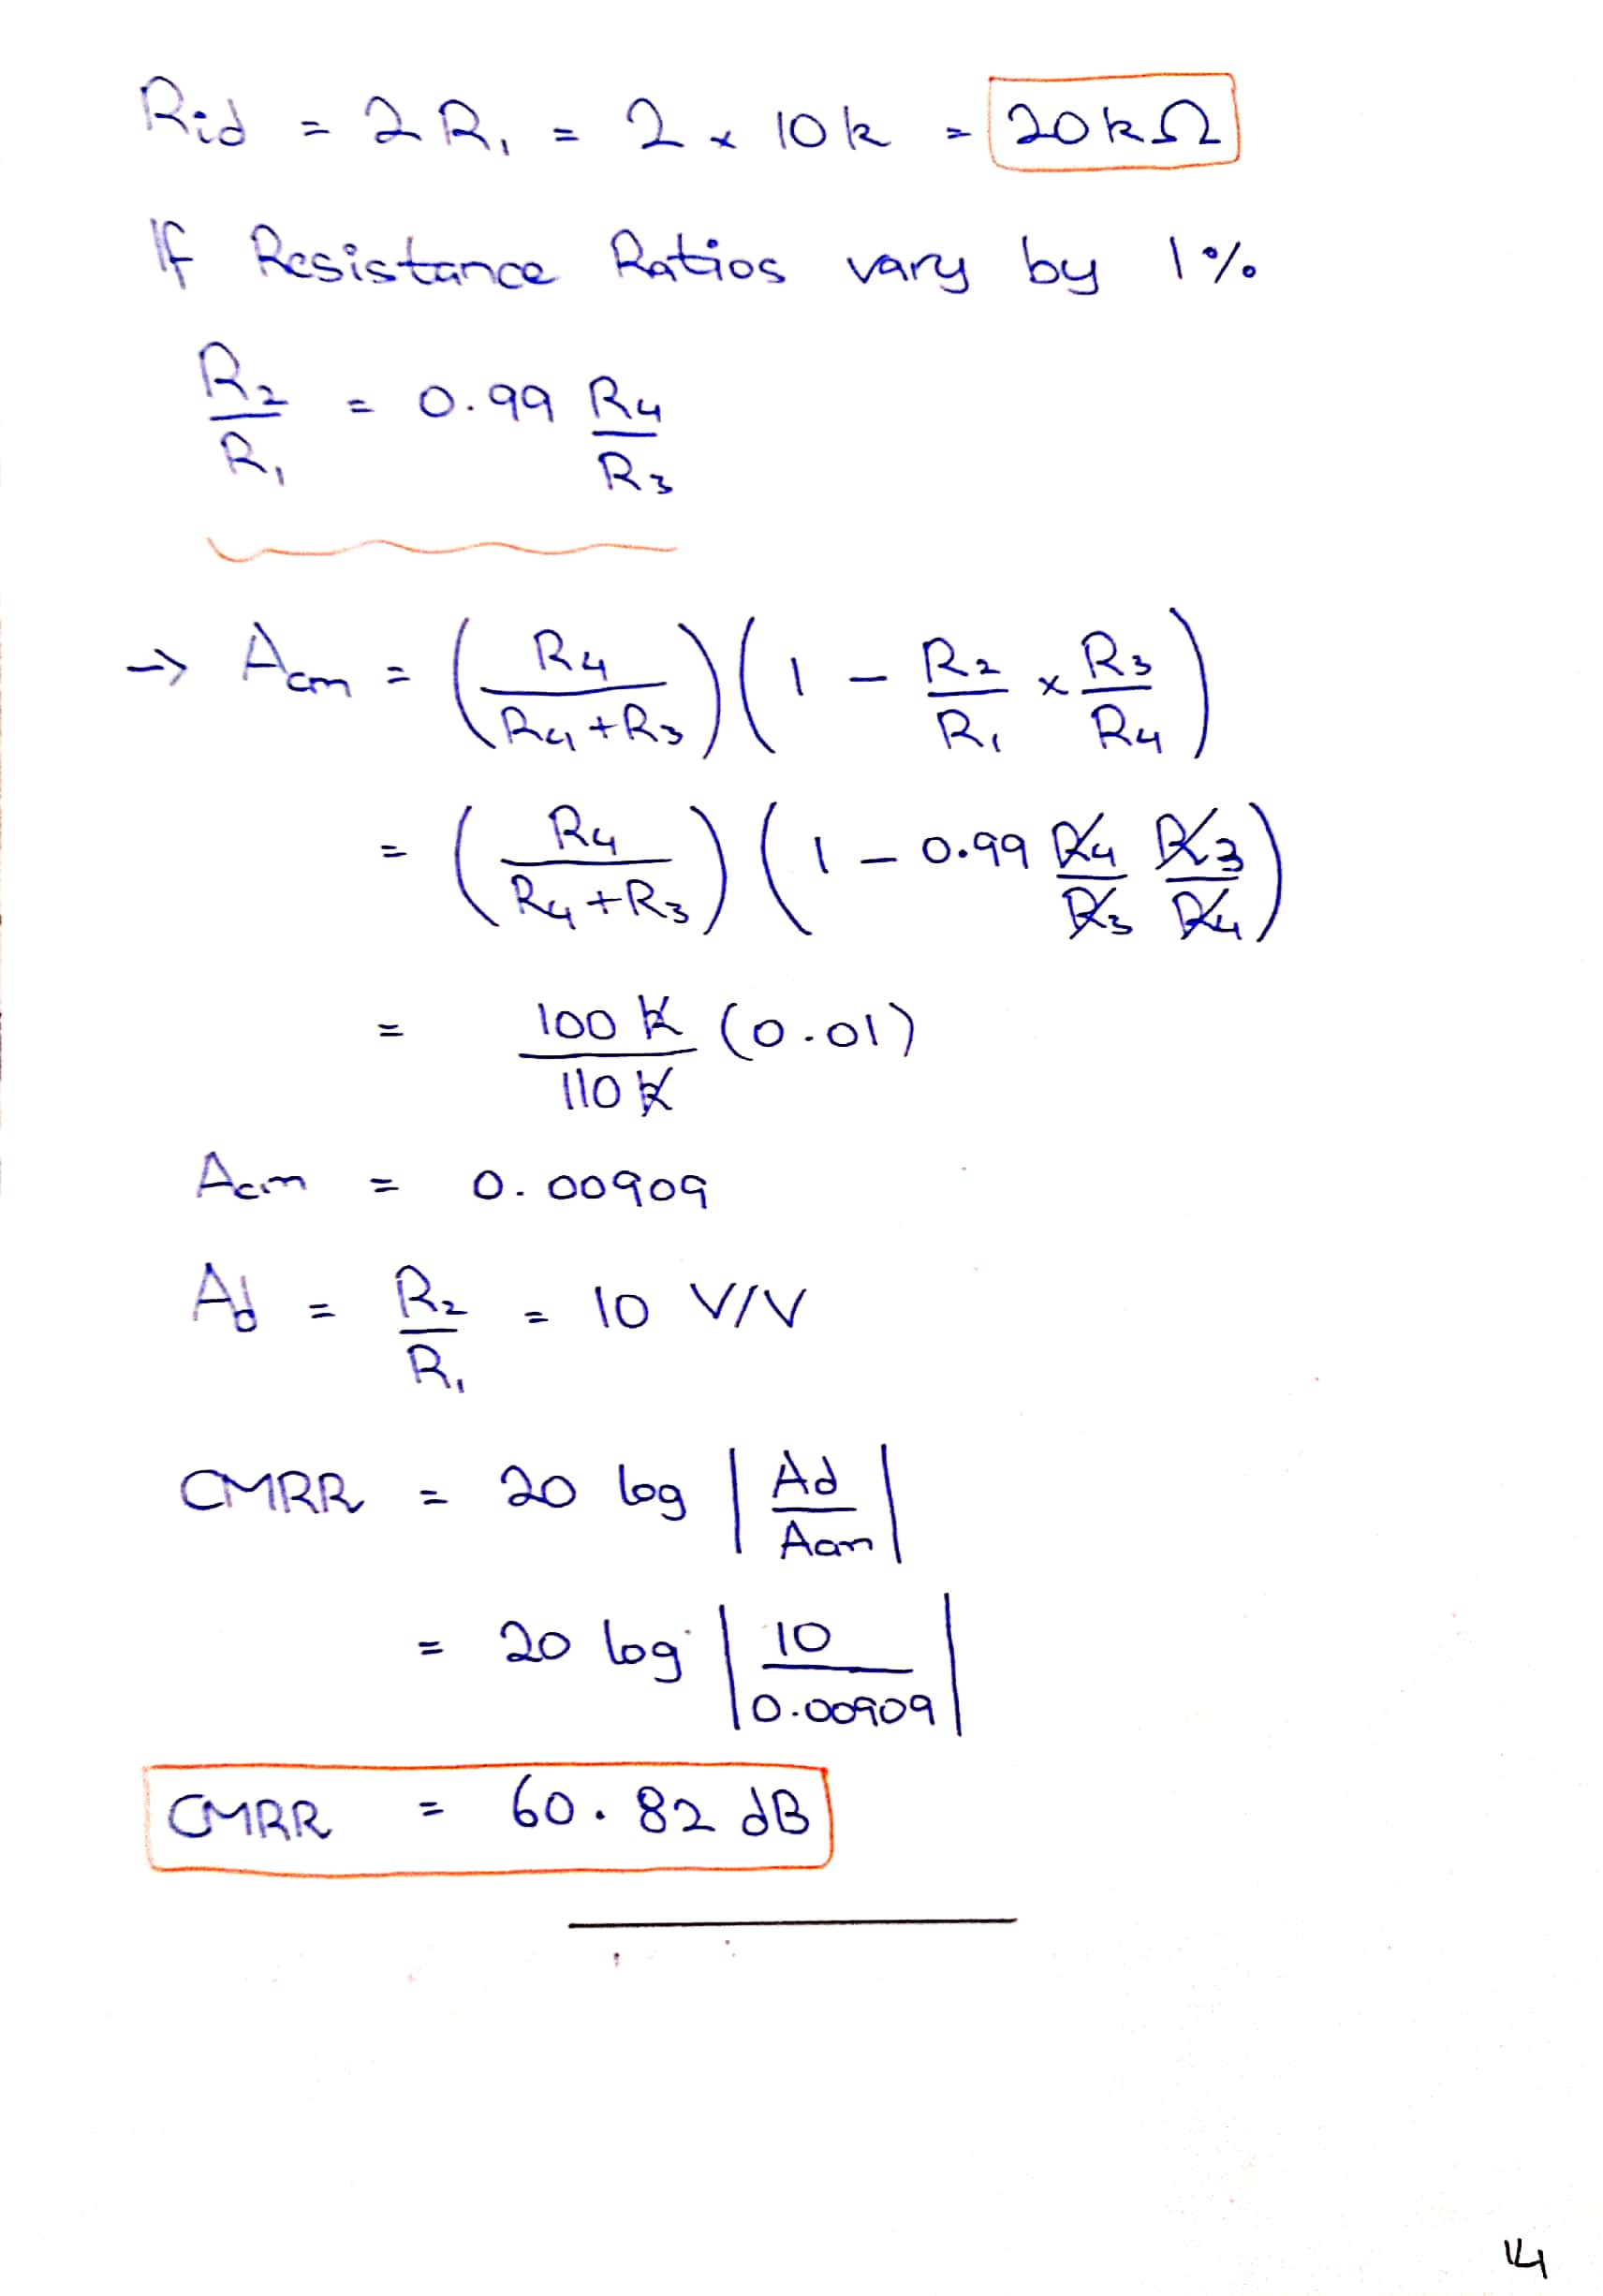 Rid = 2R₁ = 2 × 10k = 20kΩ
If Resistance Ratios vary by 1%
R₂/R₁ = 0.99 R₄/R₃
→ Acm = (R₄/(R₄+R₃)) (1 − R₂/R₁ × R₃/R₄)
= (R₄/(R₄+R₃)) (1 − 0.99 R₄/R₃ R₃/R₄)
= 100K/110K (0.01)
Acm = 0.00909
Ad = R₂/R₁ = 10 V/V
CMRR = 20 log |Ad/Acm|
= 20 log |10/0.00909|
CMRR = 60.82 dB
14